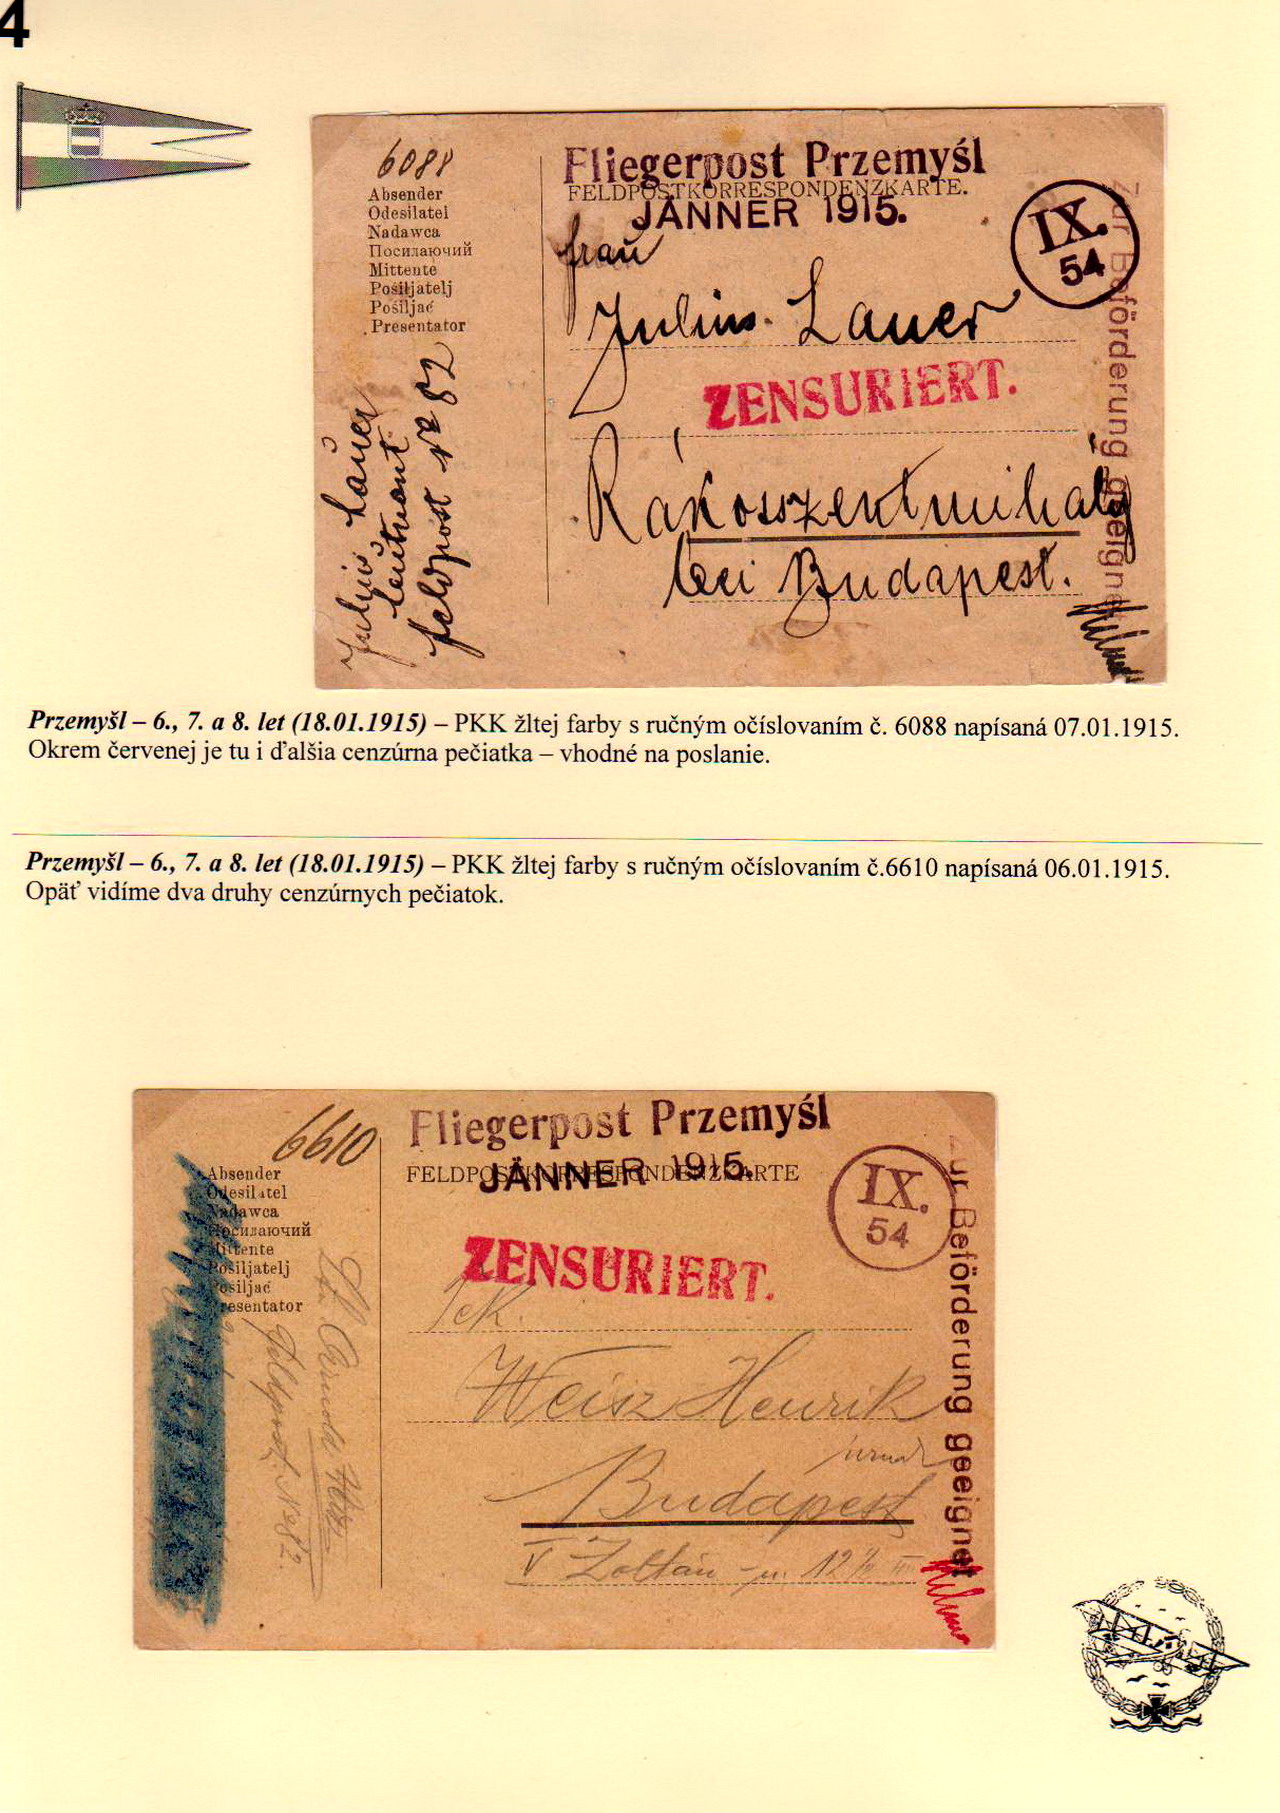 4
6088
Absender
Odesilatel
Nadawca
Посилаючий
Mittente
Pošiljatelj
Pošiljač
Presentator
Julius Lauer
Leutnant
feldpost No 82
Fliegerpost Przemyśl
FELDPOSTKORRESPONDENZKARTE.
JÄNNER 1915.
IX.
54
frau
Julius Lauer
ZENSURIERT.
Rákosszentmihály
bei Budapest.
Zur Beförderung geeignet
Przemyšl – 6., 7. a 8. let (18.01.1915) – PKK žltej farby s ručným očíslovaním č. 6088 napísaná 07.01.1915.
Okrem červenej je tu i ďalšia cenzúrna pečiatka – vhodné na poslanie.
Przemyšl – 6., 7. a 8. let (18.01.1915) – PKK žltej farby s ručným očíslovaním č.6610 napísaná 06.01.1915.
Opäť vidíme dva druhy cenzúrnych pečiatok.
6610
Absender
Odesilatel
Nadawca
Посилаючий
Mittente
Pošiljatelj
Pošiljač
Presentator
Feldpost No 82.
Fliegerpost Przemyśl
FELDPOSTKORRESPONDENZKARTE
JÄNNER 1915.
IX.
54
ZENSURIERT.
Weisz Henrik
Budapest
V Zoltán u. 12
Zur Beförderung geeignet